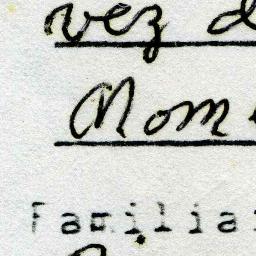 vez d
Nom
Familia